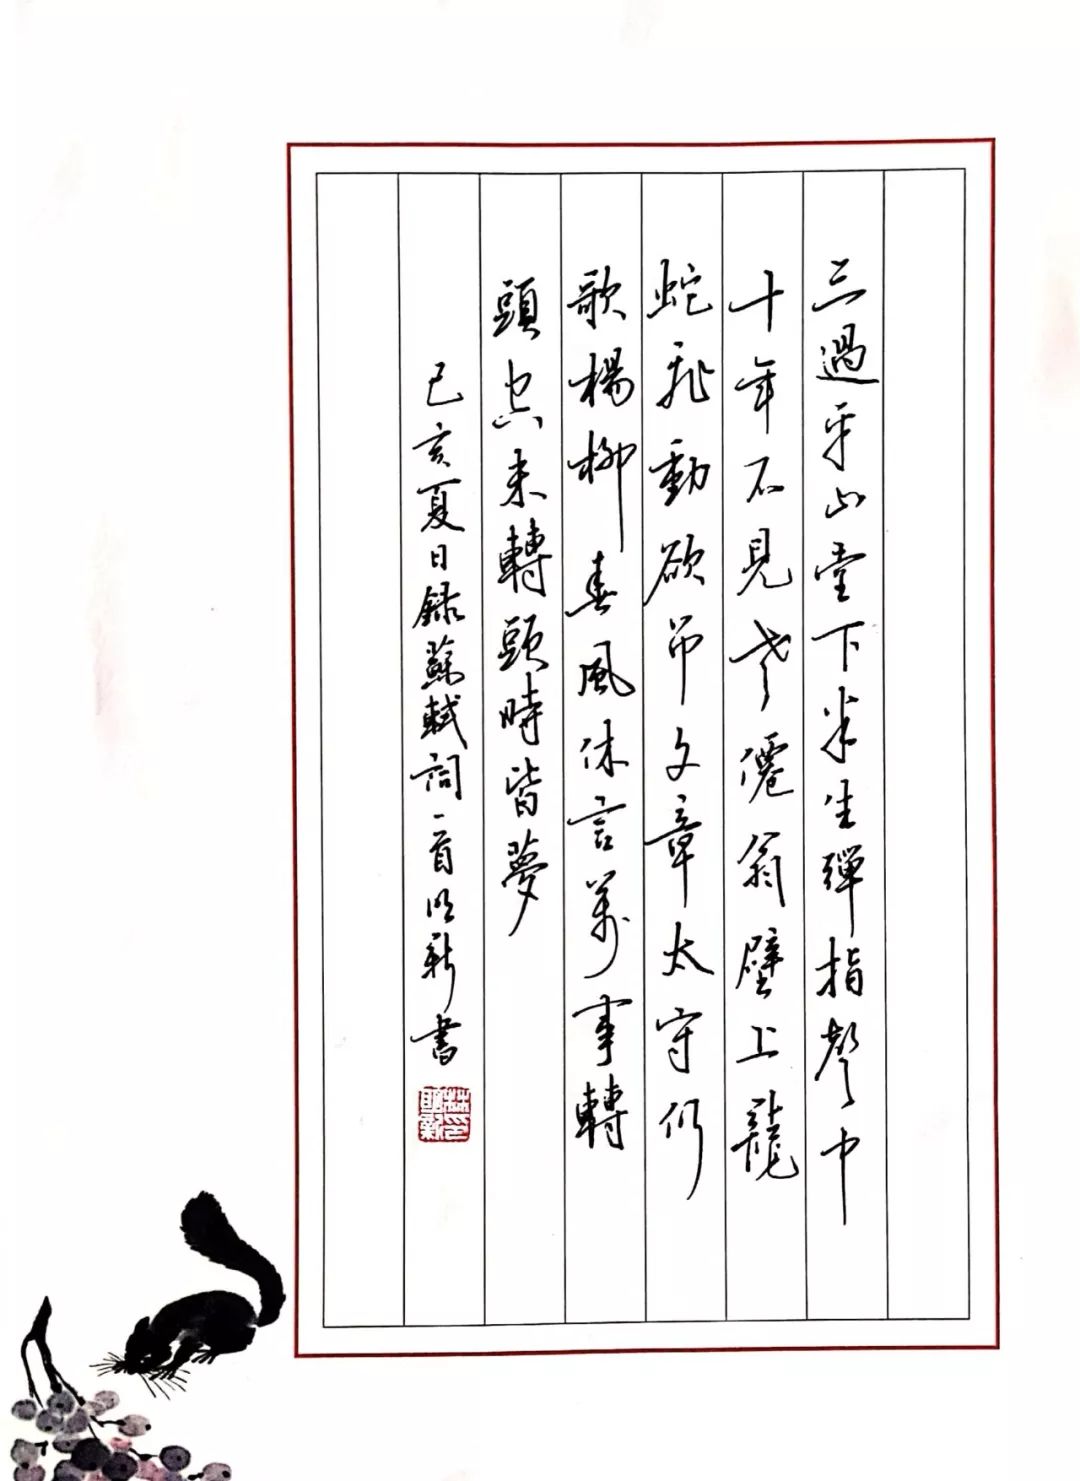 三過平山堂下半生彈指聲中
十年不見老僊翁壁上龍
蛇飛動欲吊文章太守仍
歌楊柳春風休言萬事轉
頭空未轉頭時皆夢
己亥夏日錄蘇軾詞一首明新書
林印明新